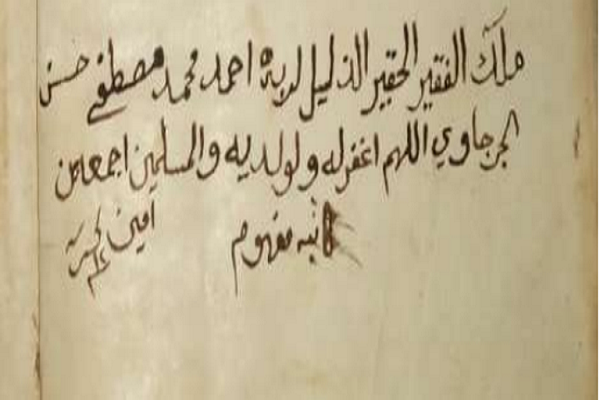 ملك الفقير الحقير الذليل لربه احمد محمد مصطفي حسن
الجرجاوي اللهم اغفر له ولولديه والمسلمين اجمعين
امين
كاتبه مفهوم